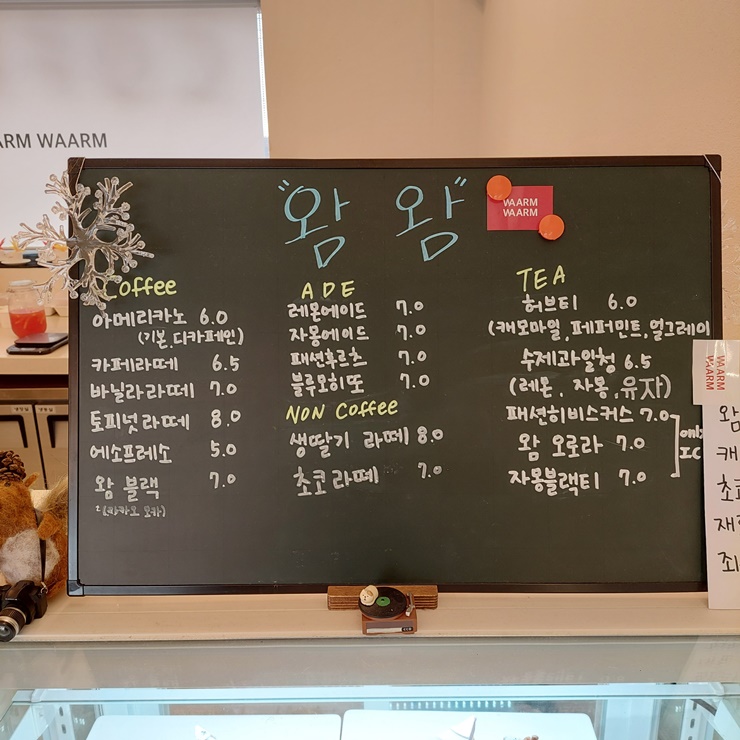 ARM WAARM
"왐 왐"
WAARM
WAARM
Coffee
아메리카노 6.0
(기본, 디카페인)
카페라떼 6.5
바닐라라떼 7.0
토피넛라떼 8.0
에소프레소 5.0
왐 블랙 7.0
ADE
레몬에이드 7.0
자몽에이드 7.0
패션후르츠 7.0
블루모히또 7.0
NON Coffee
생딸기 라떼 8.0
초코라떼 7.0
TEA
허브티 6.0
(캐모마일, 페퍼민트, 얼그레이
수제과일청 6.5
(레몬, 자몽, 유자)
패션히비스커스 7.0
왐 오로라 7.0
자몽블랙티 7.0
WAARM
WAARM
왐
캐
초
재
죄